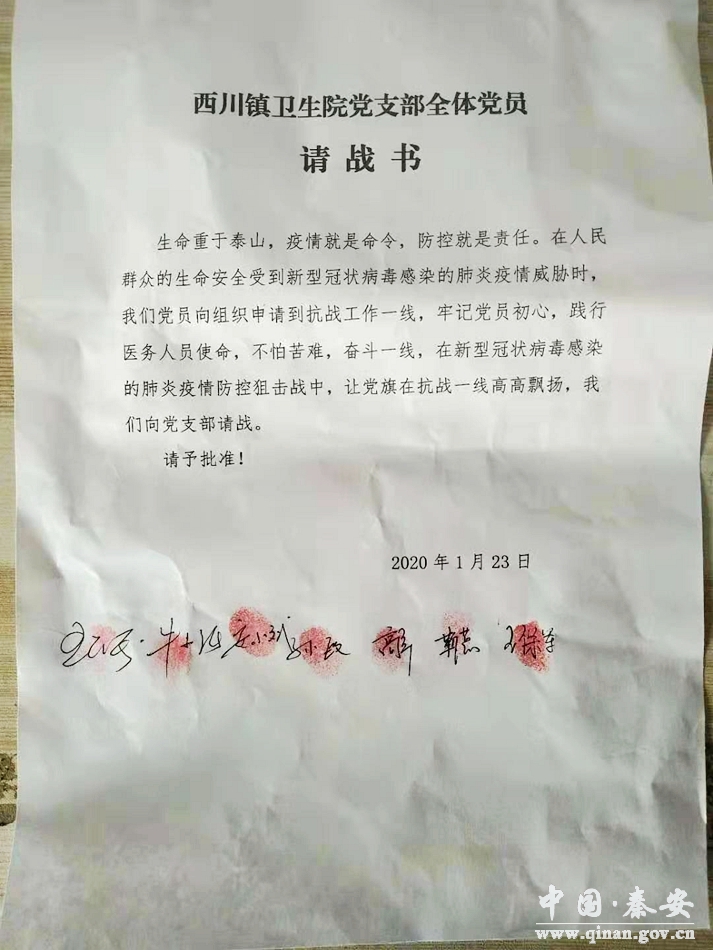 西川镇卫生院党支部全体党员
请战书
生命重于泰山，疫情就是命令，防控就是责任。在人民
群众的生命安全受到新型冠状病毒感染的肺炎疫情威胁时，
我们党员向组织申请到抗战工作一线，牢记党员初心，践行
医务人员使命，不怕苦难，奋斗一线，在新型冠状病毒感染
的肺炎疫情防控狙击战中，让党旗在抗战一线高高飘扬，我
们向党支部请战。
请予批准！
2020年1月23日
中国·秦安
www.qinan.gov.cn